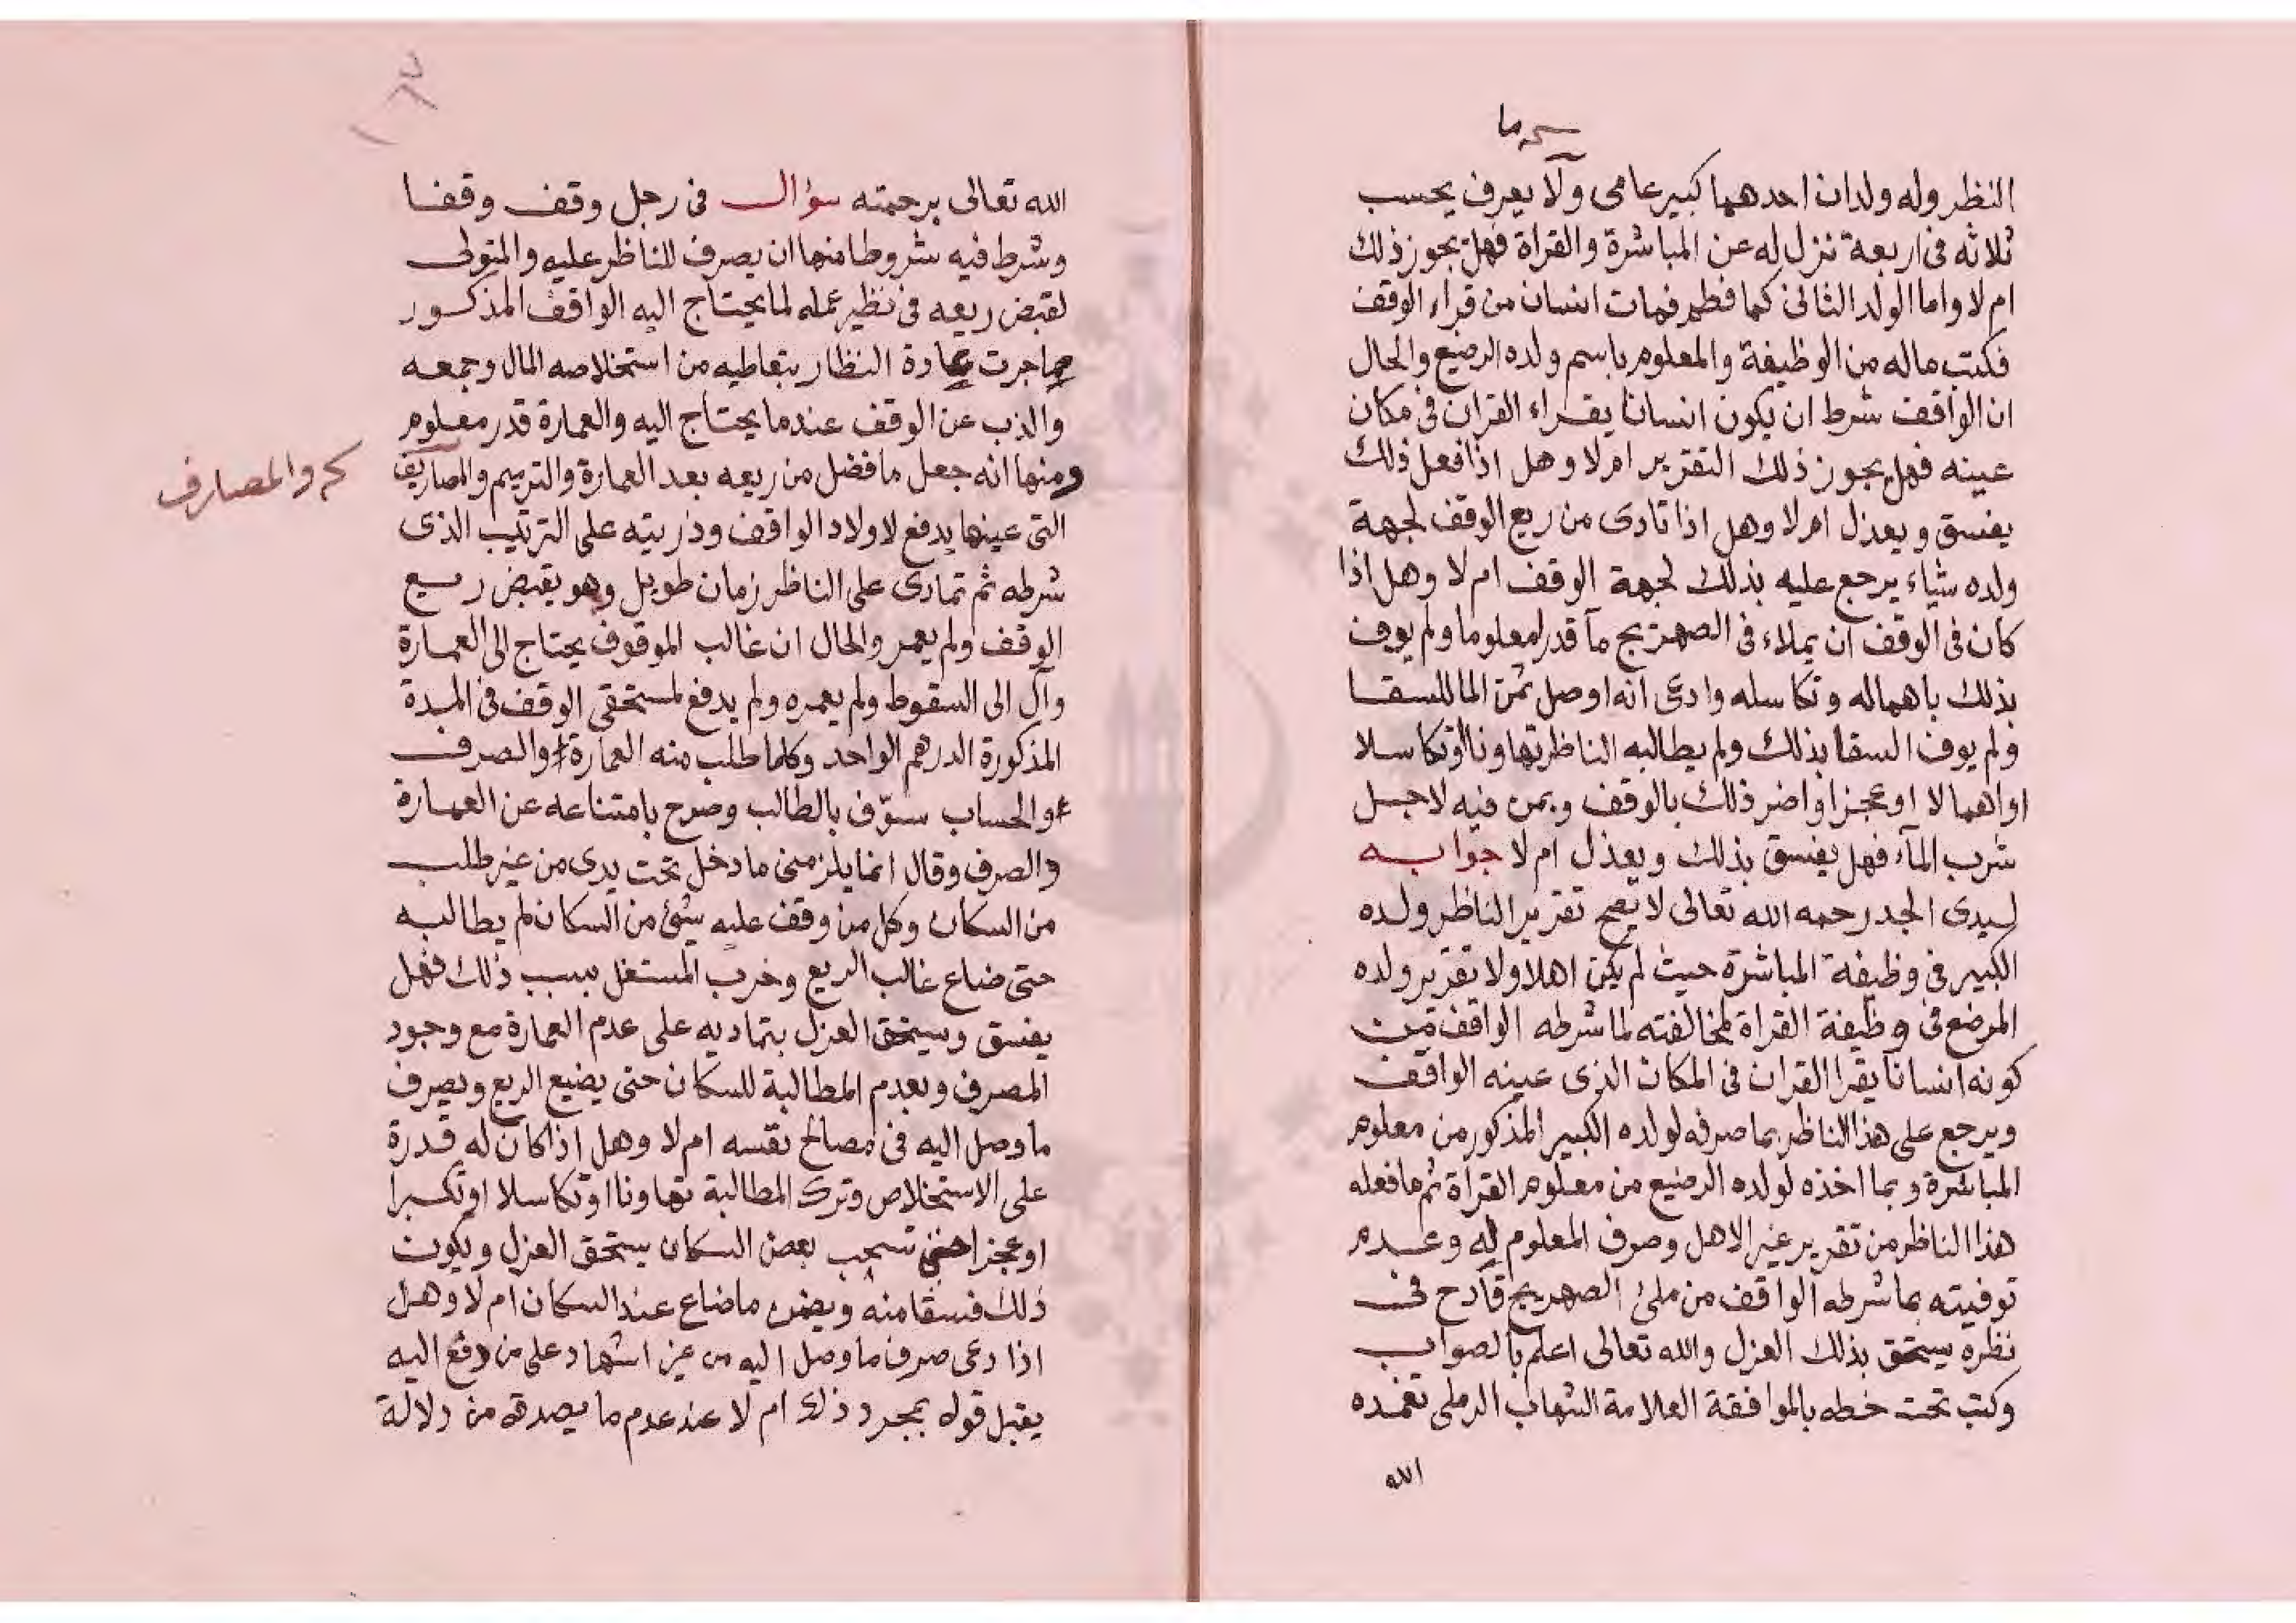 النظر وله ولدان احدهما كبير عامى ولا يعرف يحسب
ثلاثه فى اربعة نزل له عن المباشرة والقراة فهل يجوز ذلك
ام لا واما الولد الثانى كما فطم فمات انسان من قراء الوقف
فكتب ماله من الوظيفة والمعلوم باسم ولده الرضيع والحال
ان الواقف شرط ان يكون انسانا يقراء القران فى مكان
عينه فهل يجوز ذلك التقرير ام لا وهل اذا فعل ذلك
يفسق ويعزل ام لا وهل اذا تادى من ريع الوقف لجهة
ولده شياء يرجع عليه بذلك لجهة الوقف ام لا وهل اذا
كان فى الوقف ان يملاء فى الصهريج مآ قدرا معلوما ولم يوف
بذلك باهماله وتكاسله وادعى انه اوصل ثمن الما للسقا
ولم يوف السقا بذلك ولم يطالبه الناظر تهاونا او تكاسلا
او اهمالا او عجزا واضر ذلك بالوقف وبمن فيه لاجل
شرب المآء فهل يفسق بذلك ويعزل ام لا جوابه
لسيدى الجد رحمه الله تعالى لا يصح تقرير الناظر ولده
الكبير فى وظيفة المباشرة حيث لم يكن اهلا ولا تقرير ولده
المرضع فى وظيفة القراة لمخالفته لما شرطه الواقف من
كونه انسانا يقرا القران فى المكان الذى عينه الواقف
ويرجع على هذا الناظر بما صرفه لولده الكبير المذكور من معلوم
المباشرة وبما اخذه لولده الرضيع من معلوم القراة ثم ما فعله
هذا الناظر من تقرير غير الاهل وصرف المعلوم له وعدم
توفيته بما شرطه الواقف من ملئ الصهريج قادح فى
نظره يستحق بذلك العزل والله تعالى اعلم بالصواب
وكتب تحت خطه بالموافقة العلامة الشهاب الرملى تغمده
الله
الله تعالى برحمته سؤال فى رجل وقف وقفا
وشرط فيه شروطا منها ان يصرف للناظر عليه والمتولى
لقبض ريعه فى نظير عمله لما يحتاج اليه الواقف المذكور
مما جرت عادة النظار بتعاطيه من استخلاصه المال وجمعه
والذب عن الوقف عندما يحتاج اليه والعمارة قدر معلوم
ومنها انه جعل ما فضل من ريعه بعد العمارة والترميم والمصاريف
والمصارف
التى عينها يدفع لاولاد الواقف وذريته على الترتيب الذى
شرطه ثم تمادى على الناظر زمان طويل وهو يقبض ريع
الوقف ولم يعمر والحال ان غالب الموقوف يحتاج الى العمارة
وآل الى السقوط ولم يعمره ولم يدفع لمستحقى الوقف فى المدة
المذكورة الدرهم الواحد وكلما طلب منه العمارة والصرف
والحساب سوّف بالطالب وصرح بامتناعه عن العمارة
والصرف وقال انما يلزمنى ما دخل تحت يدى من غير طلب
من السكان وكل من وقف عليه شئ من السكان لم يطالبه
حتى ضاع غالب الريع وخرب المستغل بسبب ذلك فهل
يفسق ويستحق العزل بتماديه على عدم العمارة مع وجود
المصرف وبعدم المطالبة للسكان حتى يضيع الريع ويصرف
ما وصل اليه فى مصالح نفسه ام لا وهل اذا كان له قدرة
على الاستخلاص وترك المطالبة تهاونا او تكاسلا او تكبرا
او عجزا حتى تسحب بعض السكان يستحق العزل ويكون
ذلك فسقا منه ويضمن ما ضاع عند السكان ام لا وهل
اذا دعى صرف ما وصل اليه من غير اشهاد على من دفع اليه
يقبل قوله بمجرد ذلك ام لا عند عدم ما يصدقه من دلالة